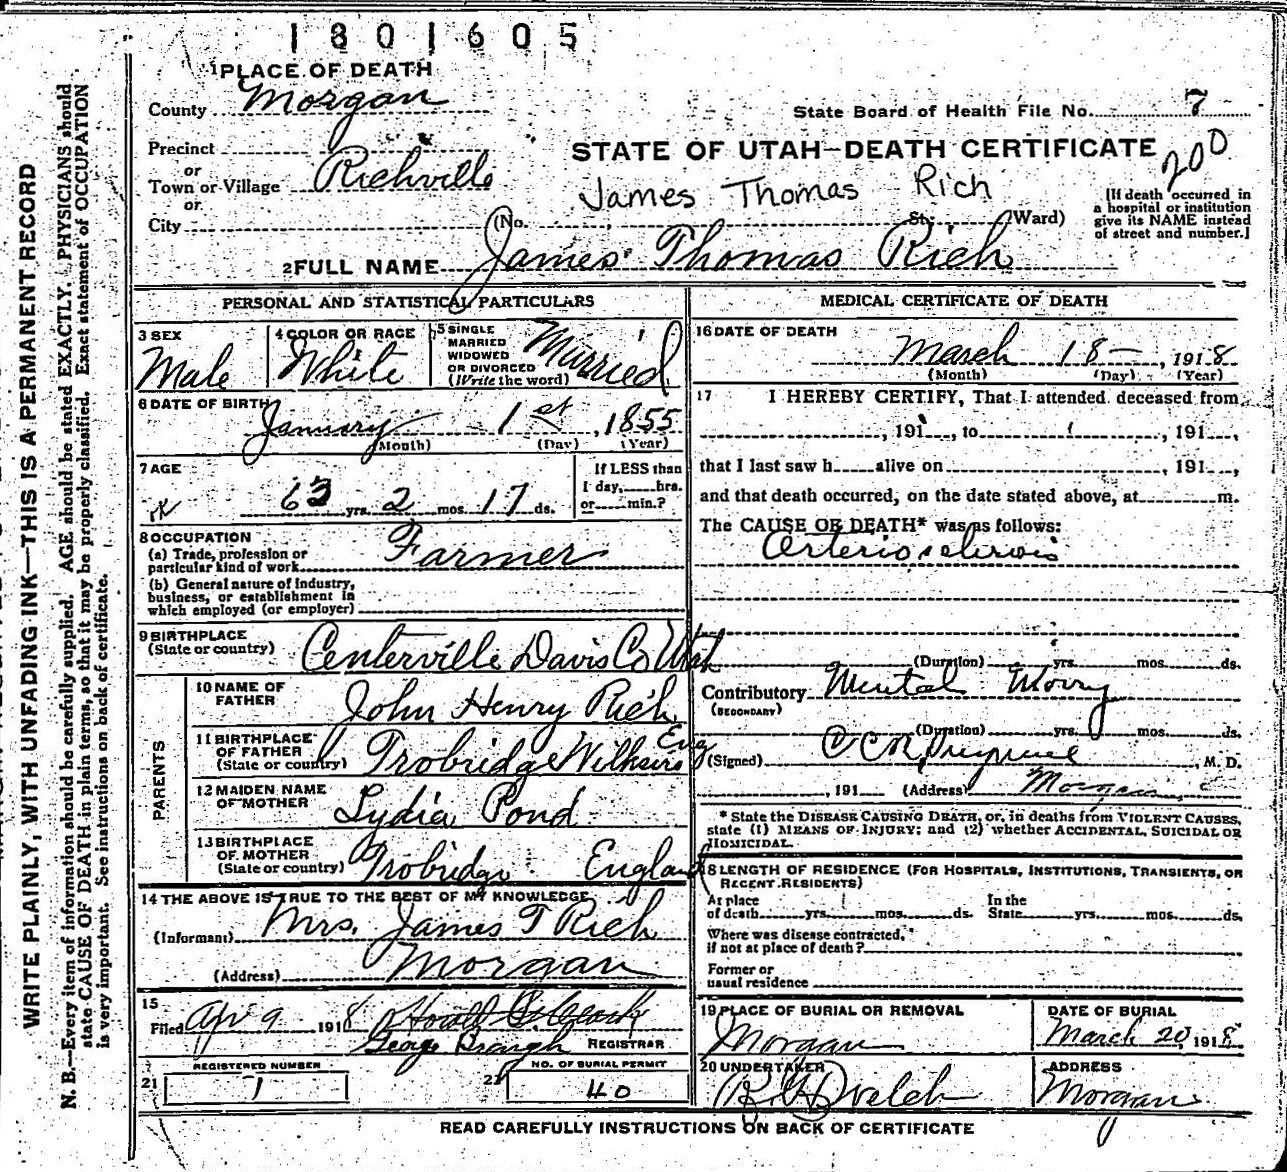 1801605
1 PLACE OF DEATH
County Morgan
State Board of Health File No. 7
Precinct
or
Town or Village Richville
or
City
STATE OF UTAH—DEATH CERTIFICATE
200
James Thomas Rich
(No. St. Ward)
[If death occurred in
a hospital or institution
give its NAME instead
of street and number.]
2 FULL NAME James Thomas Rich
PERSONAL AND STATISTICAL PARTICULARS
3 SEX
Male
4 COLOR OR RACE
White
5 SINGLE
MARRIED
WIDOWED
OR DIVORCED
(Write the word)
Married
6 DATE OF BIRTH
January 1st, 1855
(Month) (Day) (Year)
7 AGE
63 yrs. 2 mos. 17 ds.
If LESS than
1 day, hrs.
or min.?
8 OCCUPATION
(a) Trade, profession or
particular kind of work Farmer
(b) General nature of industry,
business, or establishment in
which employed (or employer)
9 BIRTHPLACE
(State or country) Centerville Davis Co Utah
PARENTS
10 NAME OF
FATHER John Henry Rich
11 BIRTHPLACE
OF FATHER
(State or country) Trobridge Wilkseirs Eng
12 MAIDEN NAME
OF MOTHER Lydia Pond
13 BIRTHPLACE
OF MOTHER
(State or country) Trobridge England
14 THE ABOVE IS TRUE TO THE BEST OF MY KNOWLEDGE
(Informant) Mrs. James T Rich
(Address) Morgan
15
Filed Apr 9 1918
George Brough REGISTRAR
21 REGISTERED NUMBER
1
22 NO. OF BURIAL PERMIT
40
MEDICAL CERTIFICATE OF DEATH
16 DATE OF DEATH
March 18—, 1918
(Month) (Day) (Year)
17 I HEREBY CERTIFY, That I attended deceased from
, 191 , to , 191 ,
that I last saw h alive on , 191 ,
and that death occurred, on the date stated above, at m.
The CAUSE OF DEATH* was as follows:
Arterio sclerosis
(Duration) yrs. mos. ds.
Contributory Mental Worry
(SECONDARY)
(Duration) yrs. mos. ds.
(Signed) , M. D.
, 191 (Address) Morgan
* State the DISEASE CAUSING DEATH, or, in deaths from VIOLENT CAUSES,
state (1) MEANS OF INJURY; and (2) whether ACCIDENTAL, SUICIDAL OR
HOMICIDAL.
18 LENGTH OF RESIDENCE (FOR HOSPITALS, INSTITUTIONS, TRANSIENTS, OR
RECENT RESIDENTS)
At place
of death yrs. mos. ds.
In the
State yrs. mos. ds.
Where was disease contracted,
if not at place of death?
Former or
usual residence
19 PLACE OF BURIAL OR REMOVAL
Morgan
DATE OF BURIAL
March 20, 1918
20 UNDERTAKER
Welch
ADDRESS
Morgan
READ CAREFULLY INSTRUCTIONS ON BACK OF CERTIFICATE
WRITE PLAINLY, WITH UNFADING INK—THIS IS A PERMANENT RECORD
N. B.—Every item of information should be carefully supplied. AGE should be stated EXACTLY. PHYSICIANS should
state CAUSE OF DEATH in plain terms, so that it may be properly classified. Exact statement of OCCUPATION
is very important. See instructions on back of certificate.